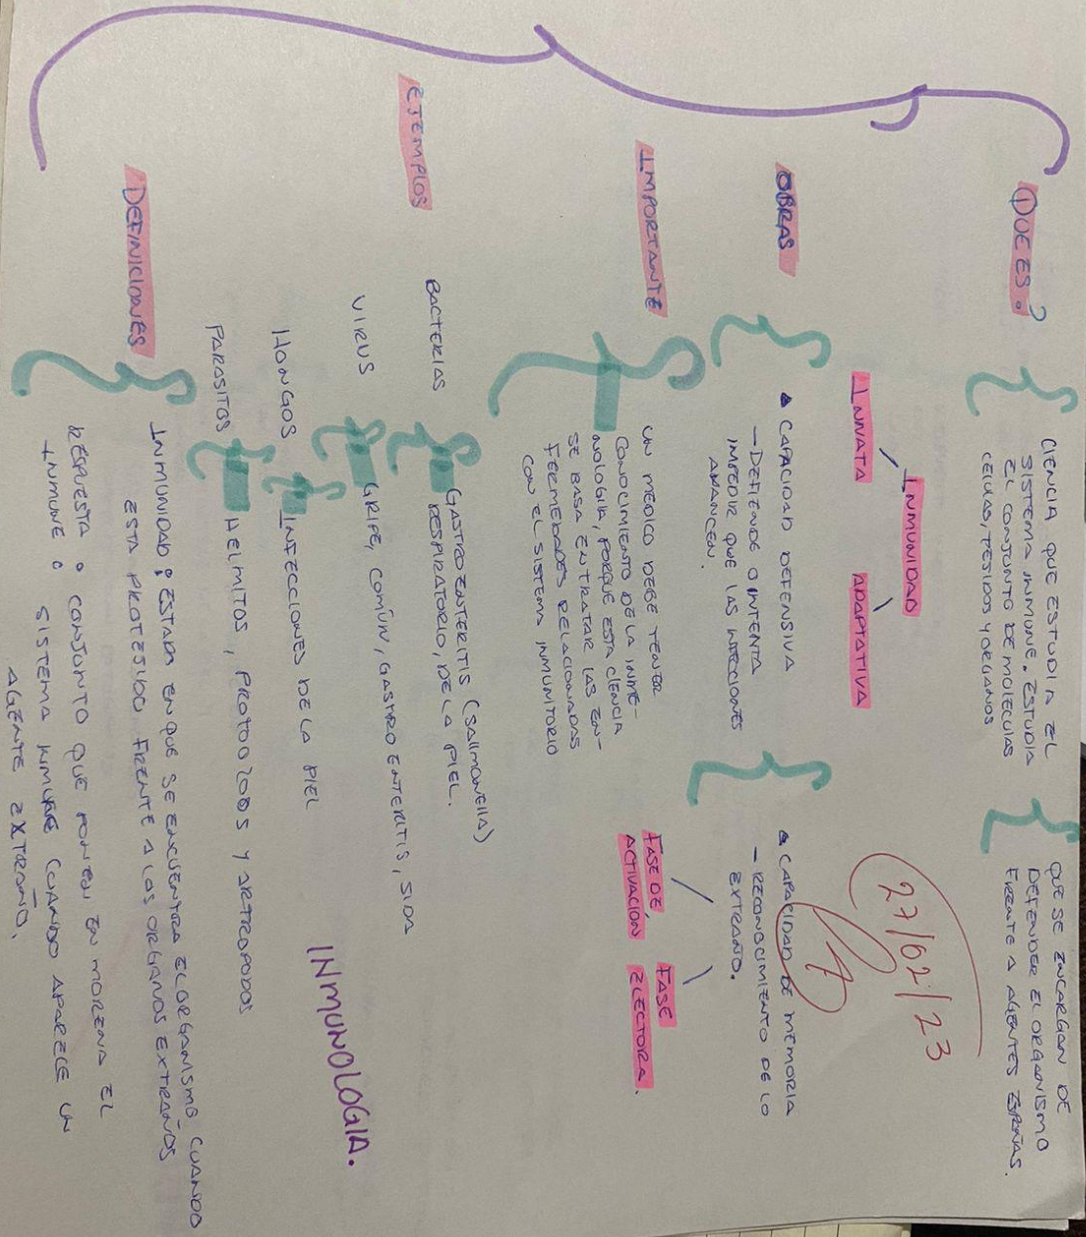 ①QUE ES?
CIENCIA QUE ESTUDIA EL
SISTEMA INMUNE. ESTUDIA
EL CONJUNTO DE MOLECULAS
CELULAS, TEJIDOS Y ORGANOS
QUE SE ENCARGAN DE
DEFENDER EL ORGANISMO
FRENTE A AGENTES
27/02/23
INMUNIDAD
INNATA
ADAPTATIVA
OBRAS
CAPACIDAD DEFENSIVA
- DEFIENDE O INTENTA
IMPEDIR QUE LAS INFECCIONES
AVANCEN.
CAPACIDAD DE MEMORIA
- RECONOCIMIENTO DE LO
EXTRAÑO.
IMPORTANTE
UN MEDICO DEBE TENER
CONOCIMIENTO DE LA INMU-
NOLOGIA, PORQUE ESTA CIENCIA
SE BASA EN TRATAR LAS EN-
FERMEDADES RELACIONADAS
CON EL SISTEMA INMUNITORIO
FASE DE
ACTIVACIÓN
FASE
EFECTORA.
EJEMPLOS
BACTERIAS
GASTROENTERITIS (SALLMONELLA)
RESPIRATORIO, DE LA PIEL.
VIRUS
GRIPE, COMÚN, GASTROENTERITIS, SIDA
HONGOS
INFECCIONES DE LA PIEL
PARASITOS
HELMITOS, PROTOOZOOS Y ARTROPODOS
INMUNOLOGIA.
DEFINICIONES
INMUNIDAD: ESTADO EN QUE SE ENCUENTRA EL ORGANISMO CUANDO
ESTA PROTEJIDO FRENTE A LOS ORGANOS EXTRAÑOS
RESPUESTA : CONJUNTO QUE PONEN EN EL
INMUNE : SISTEMA INMUNE CUANDO APARECE UN
AGENTE EXTRAÑO.